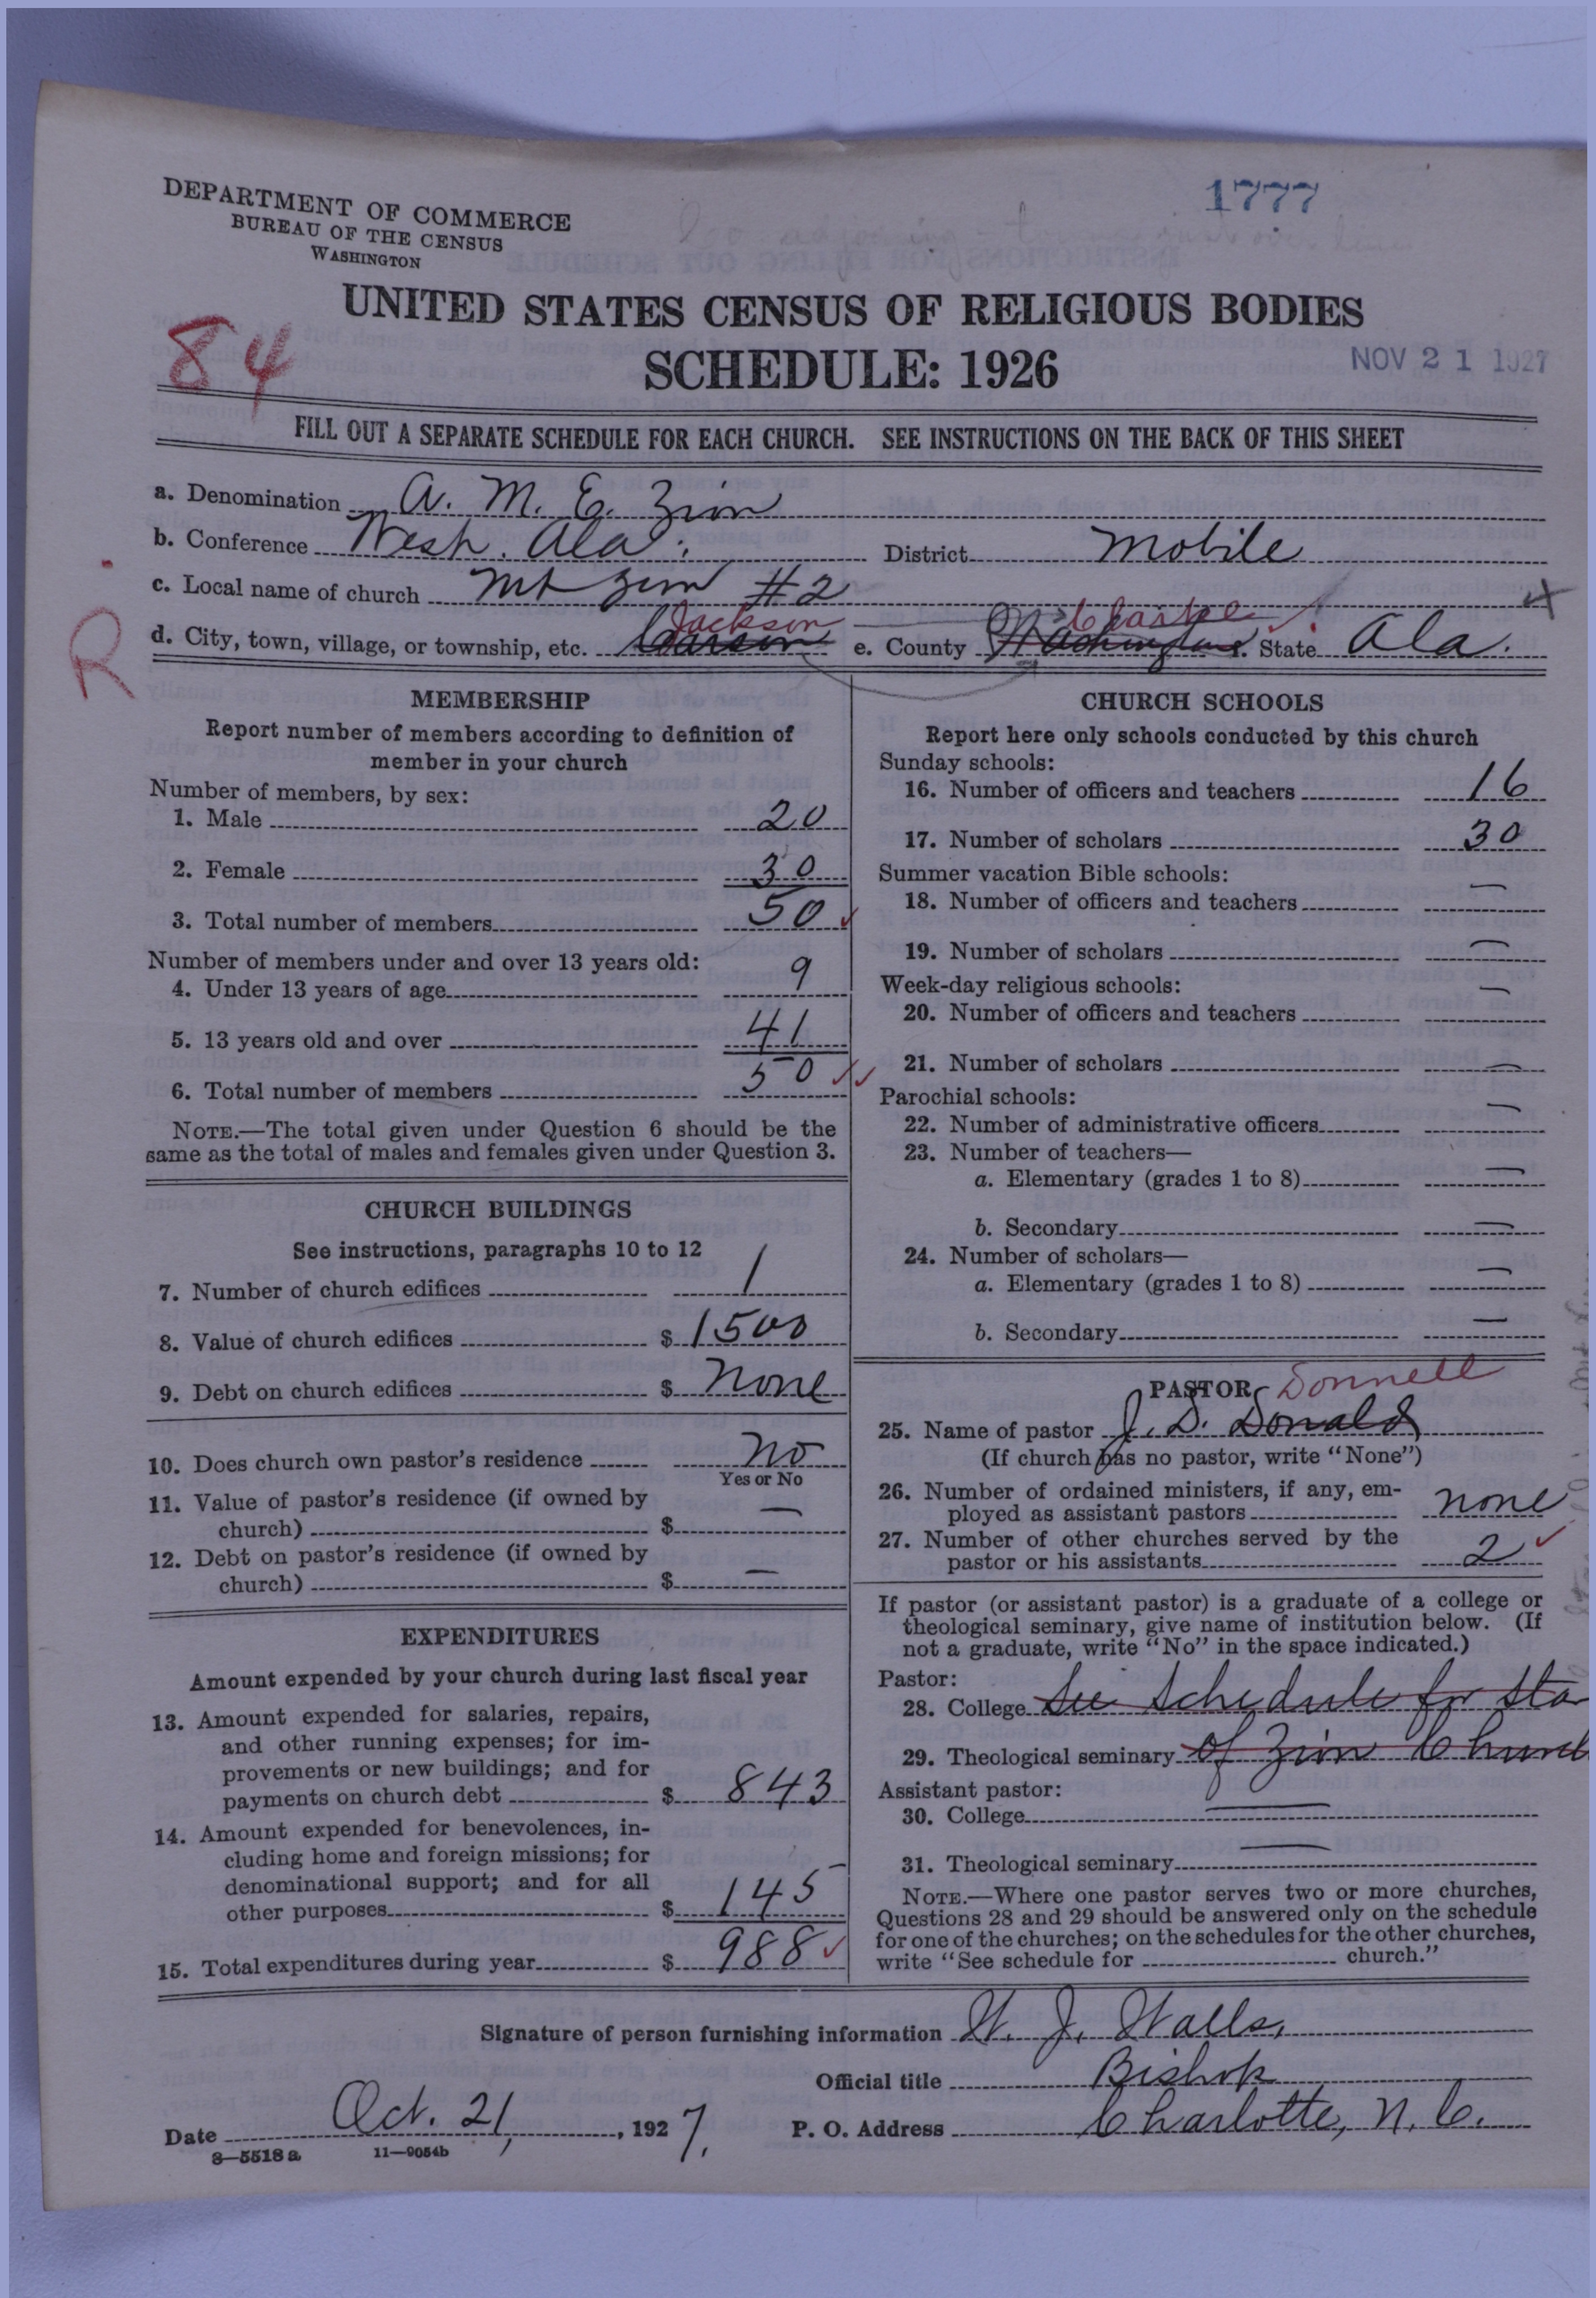 DEPARTMENT OF COMMERCE
BUREAU OF THE CENSUS
WASHINGTON
1777
UNITED STATES CENSUS OF RELIGIOUS BODIES
84
SCHEDULE: 1926
NOV 21 1927
FILL OUT A SEPARATE SCHEDULE FOR EACH CHURCH. SEE INSTRUCTIONS ON THE BACK OF THIS SHEET
a. Denomination A. M. E. Zion
b. Conference West. Ala. District Mobile
c. Local name of church Mt Zion #2
R
Jackson Clarke
d. City, town, village, or township, etc. Carson e. County Washington f. State Ala.
MEMBERSHIP
Report number of members according to definition of
member in your church
Number of members, by sex:
1. Male 20
2. Female 30
3. Total number of members 50
Number of members under and over 13 years old:
4. Under 13 years of age 9
5. 13 years old and over 41
6. Total number of members 50
NOTE.—The total given under Question 6 should be the
same as the total of males and females given under Question 3.
CHURCH BUILDINGS
See instructions, paragraphs 10 to 12
7. Number of church edifices 1
8. Value of church edifices $ 1500
9. Debt on church edifices $ none
10. Does church own pastor's residence no
Yes or No
11. Value of pastor's residence (if owned by
church) $ —
12. Debt on pastor's residence (if owned by
church) $ —
EXPENDITURES
Amount expended by your church during last fiscal year
13. Amount expended for salaries, repairs,
and other running expenses; for im-
provements or new buildings; and for
payments on church debt $ 843
14. Amount expended for benevolences, in-
cluding home and foreign missions; for
denominational support; and for all
other purposes $ 145
15. Total expenditures during year $ 988
CHURCH SCHOOLS
Report here only schools conducted by this church
Sunday schools:
16. Number of officers and teachers 16
17. Number of scholars 30
Summer vacation Bible schools:
18. Number of officers and teachers —
19. Number of scholars —
Week-day religious schools:
20. Number of officers and teachers —
21. Number of scholars —
Parochial schools:
22. Number of administrative officers —
23. Number of teachers—
a. Elementary (grades 1 to 8) —
b. Secondary —
24. Number of scholars—
a. Elementary (grades 1 to 8) —
b. Secondary —
PASTOR Donnell
25. Name of pastor J. D. Donald
(If church has no pastor, write "None")
26. Number of ordained ministers, if any, em-
ployed as assistant pastors none
27. Number of other churches served by the
pastor or his assistants 2
If pastor (or assistant pastor) is a graduate of a college or
theological seminary, give name of institution below. (If
not a graduate, write "No" in the space indicated.)
Pastor:
28. College See schedule for Sta
29. Theological seminary of Zion Church
Assistant pastor:
30. College —
31. Theological seminary —
NOTE.—Where one pastor serves two or more churches,
Questions 28 and 29 should be answered only on the schedule
for one of the churches; on the schedules for the other churches,
write "See schedule for church."
Signature of person furnishing information W. J. Walls,
Official title Bishop
Date Oct. 21, 1927. P. O. Address Charlotte, N. C.
8—5518a 11—9054b